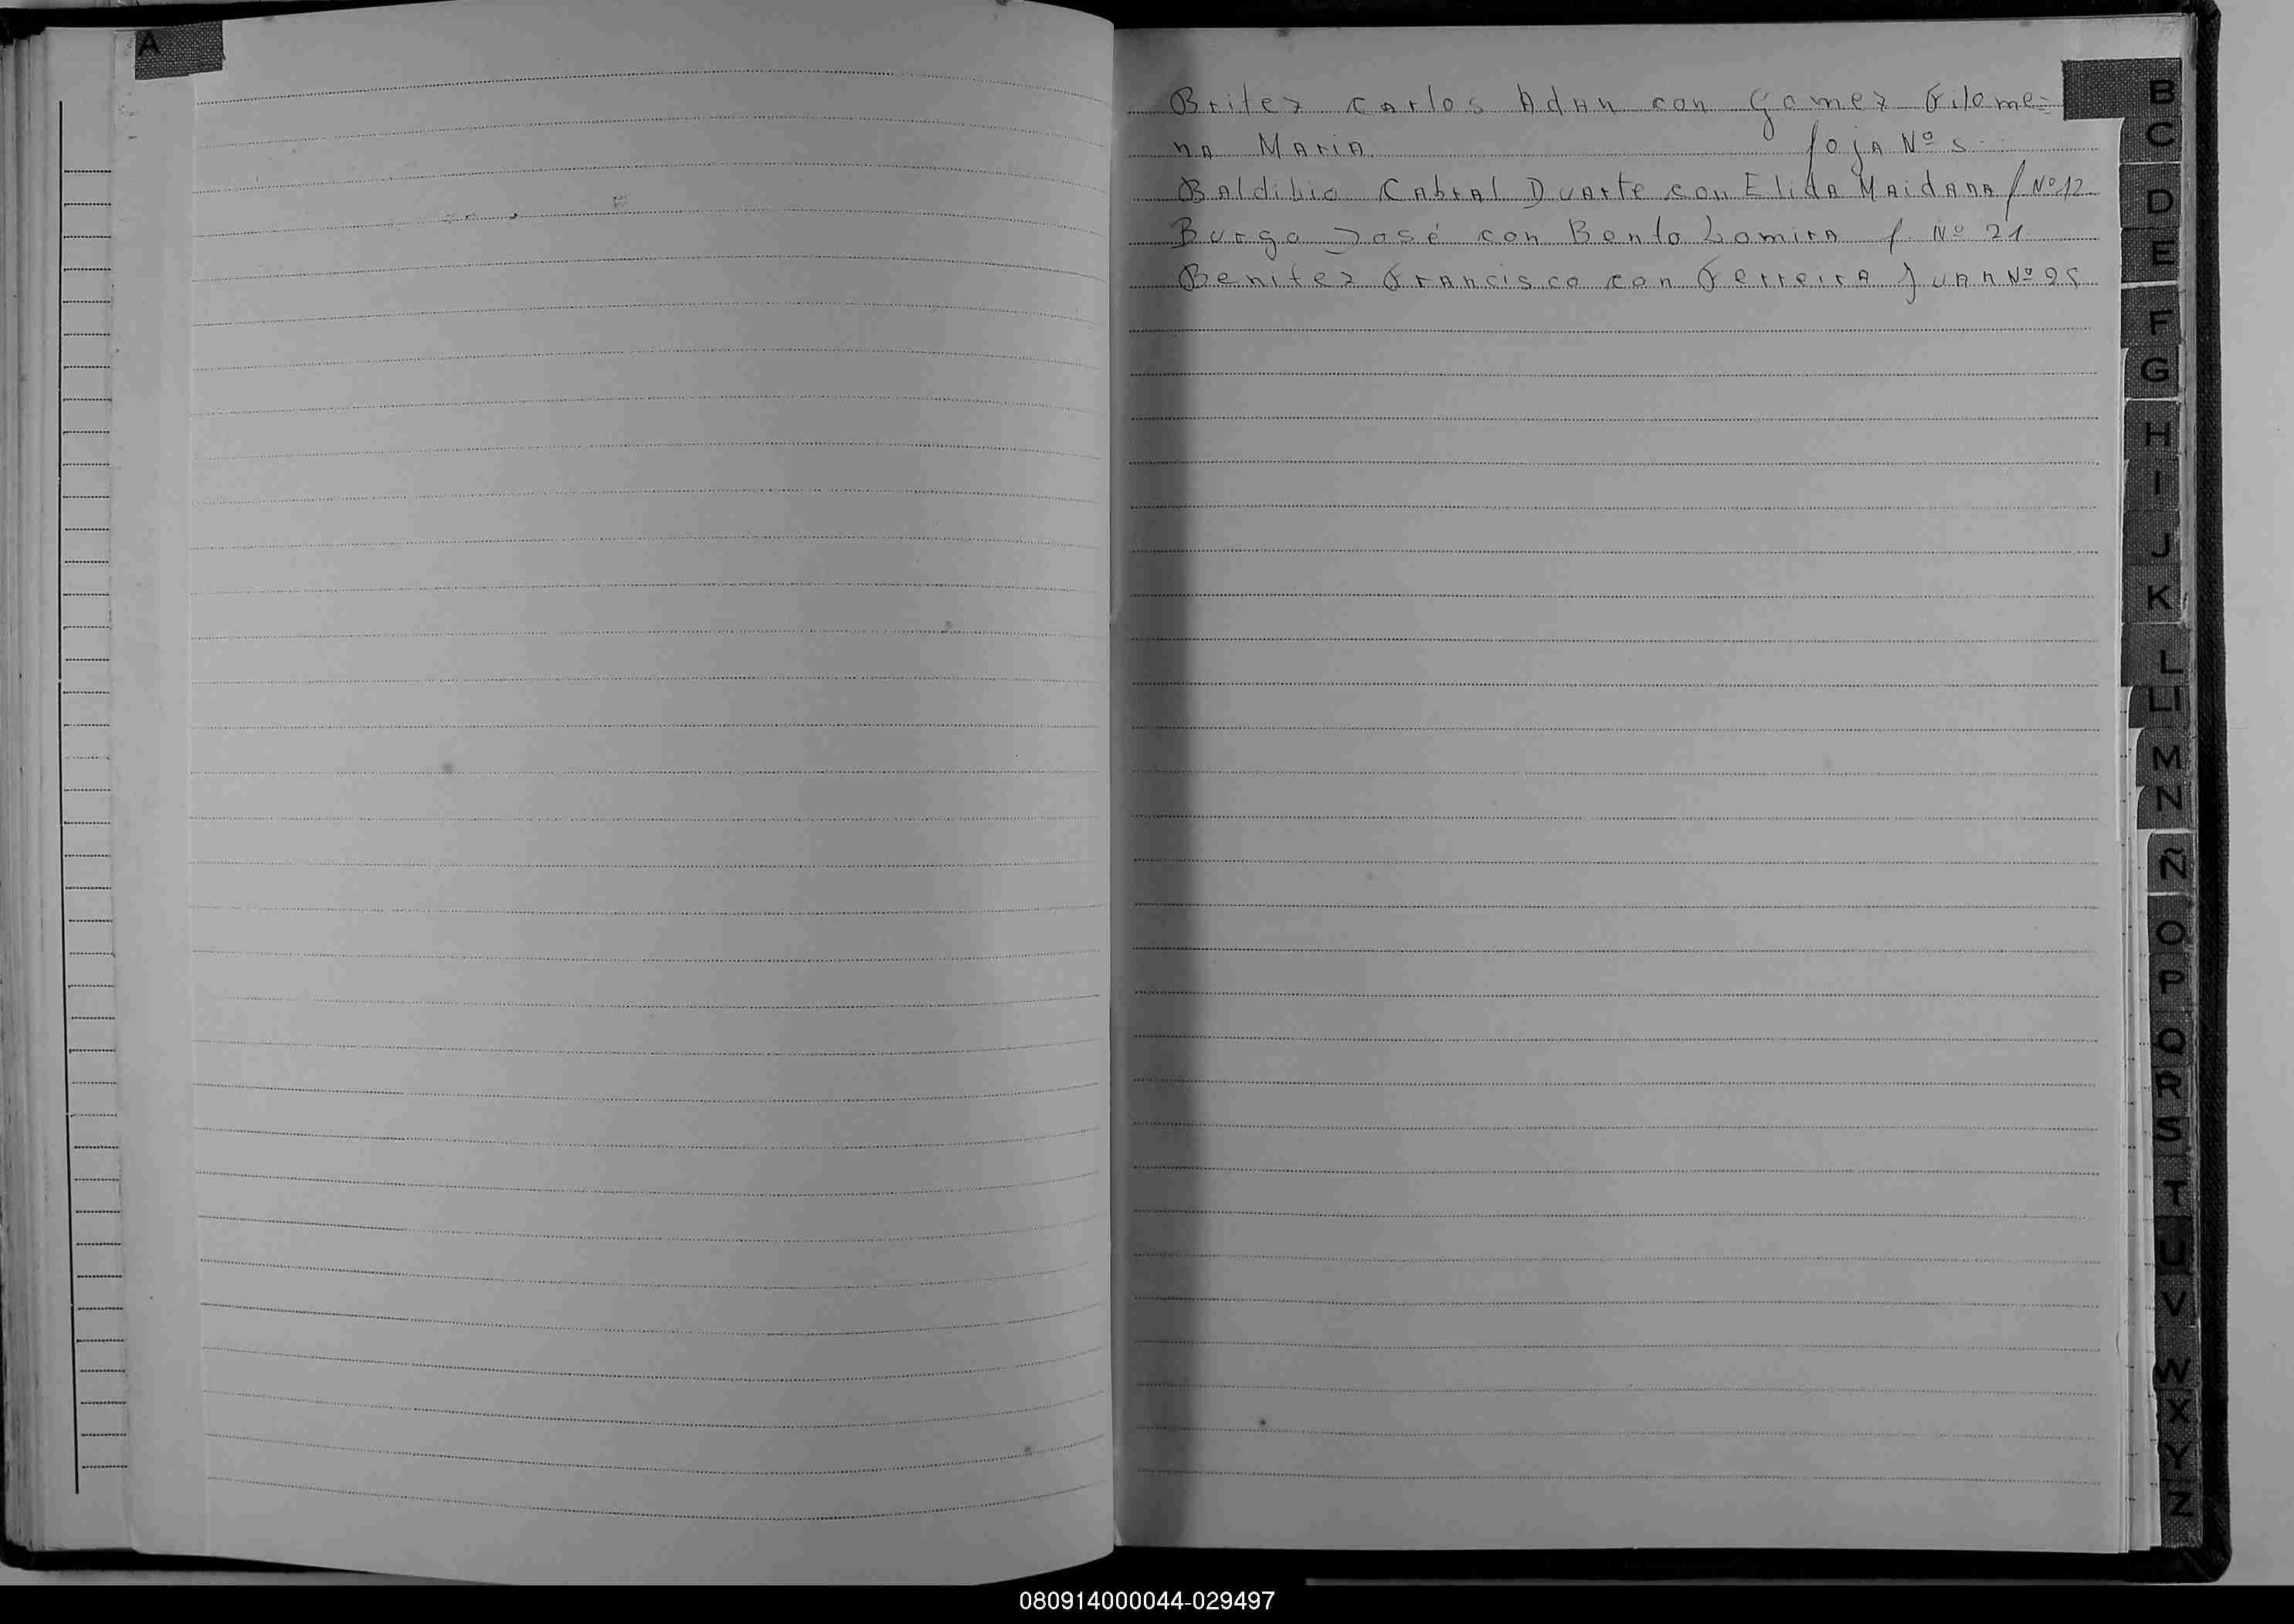 A
Britez Carlos Adan con Gomez Filome-
na Maria. foja Nº 5
Baldibio Cabral Duarte con Elida Maidana f Nº 12
Burgo José con Bento Lomira f. Nº 21
Benitez Francisco con Ferreira Juan Nº 25
B
C
D
E
F
G
H
I
J
K
L
LL
M
N
Ñ
O
P
Q
R
S
T
U
V
W
X
Y
Z
080914000044-029497